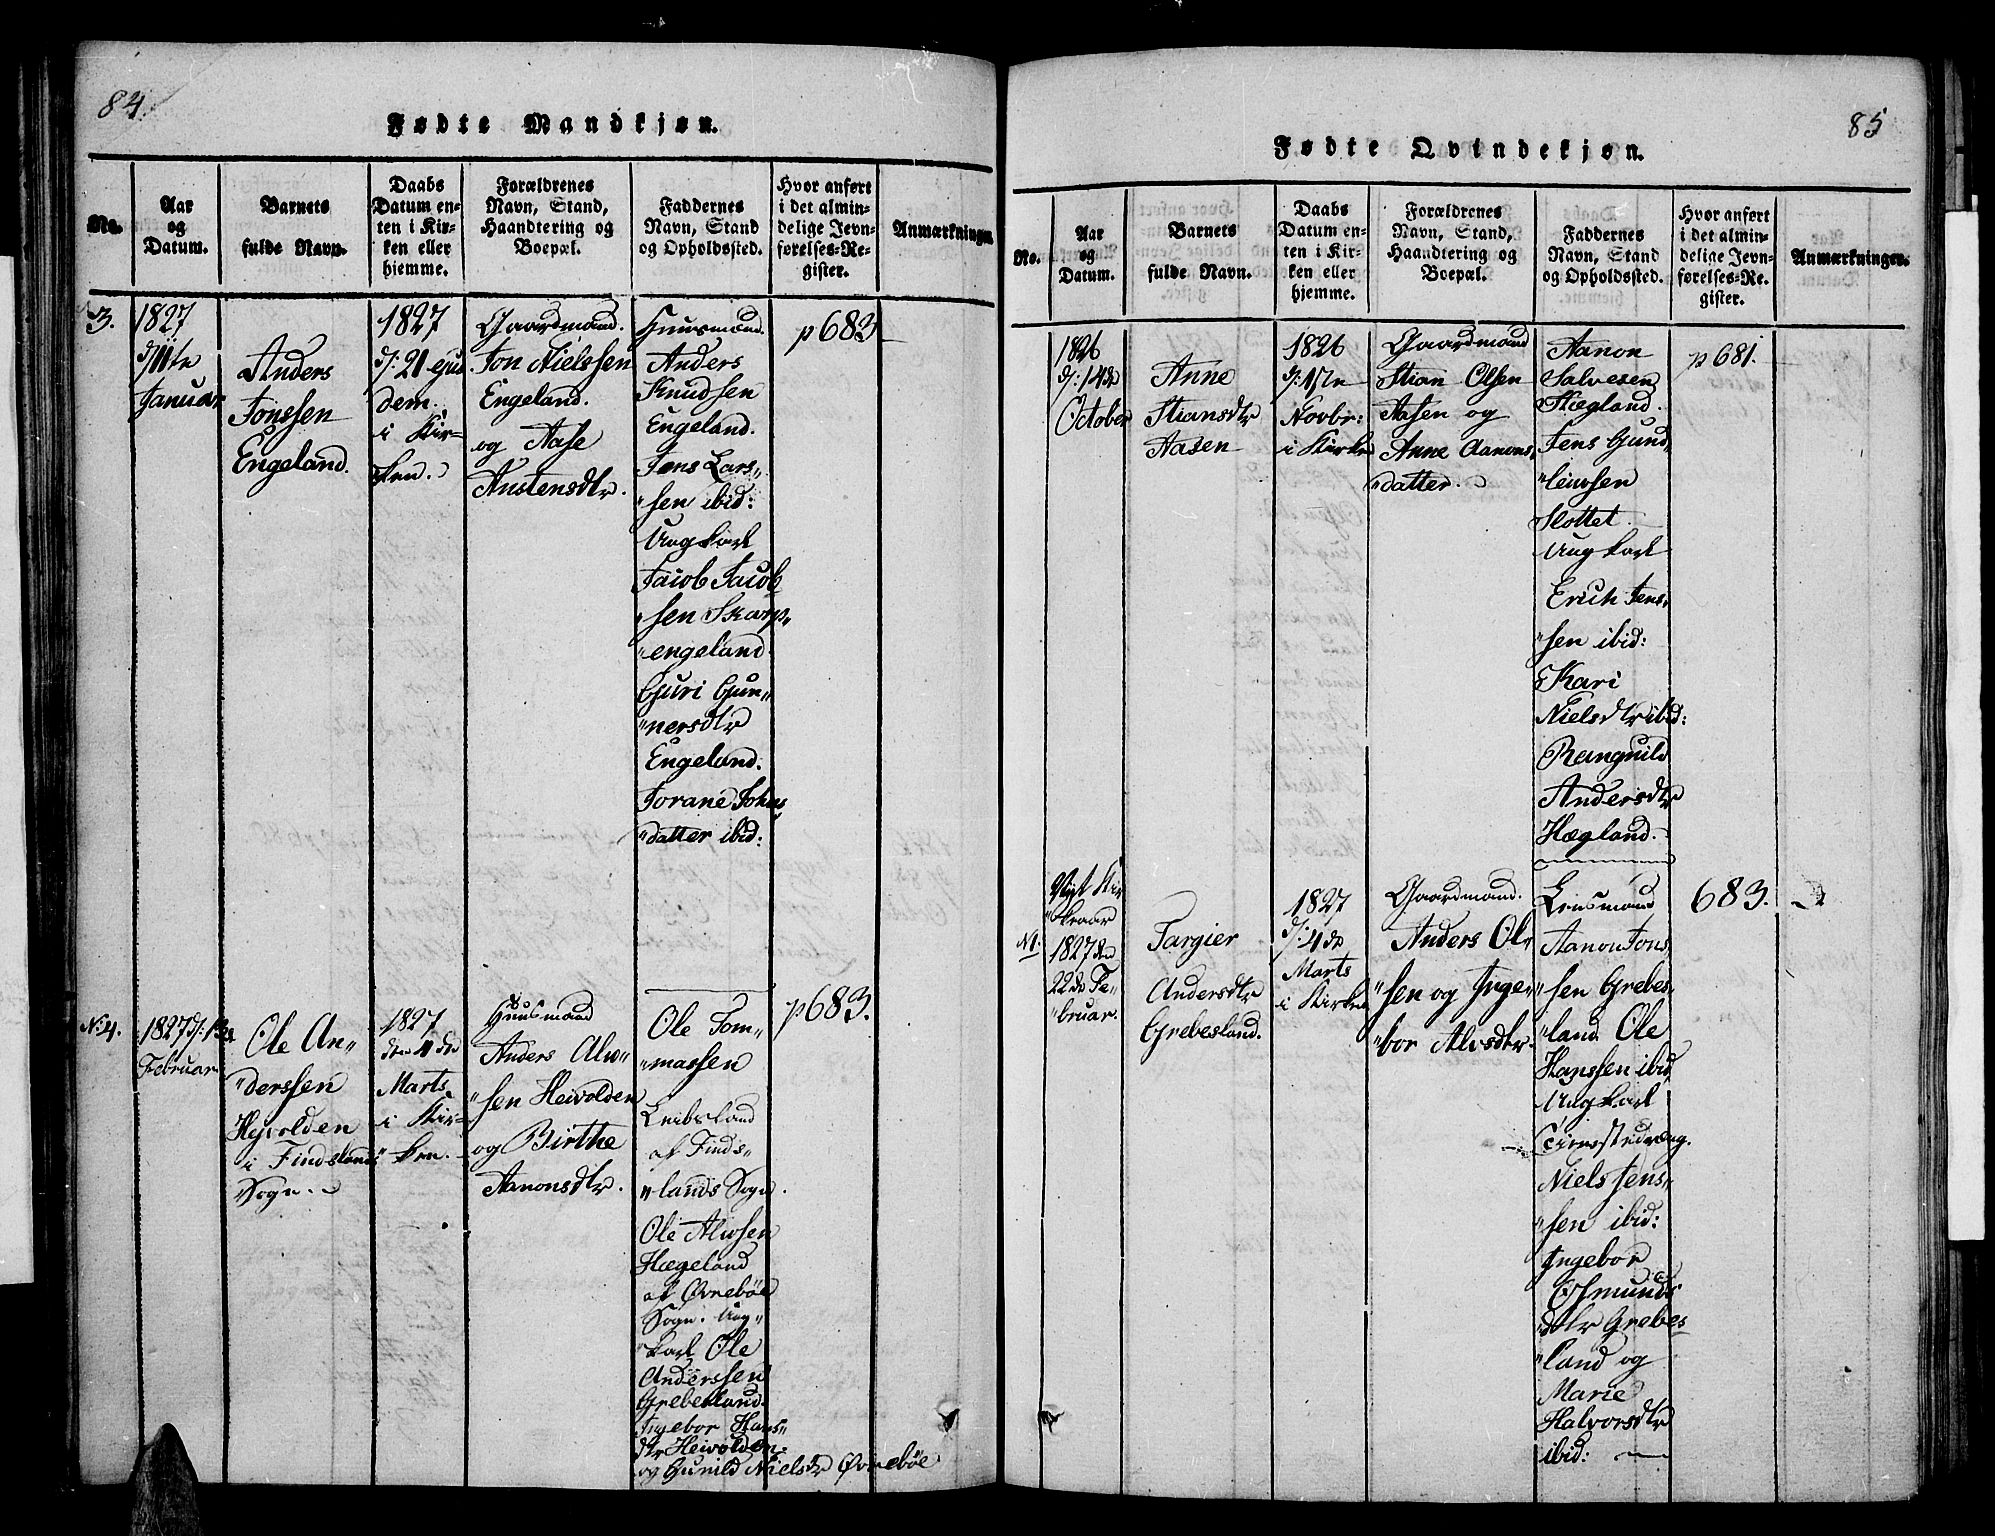 84.
Fødte Mandkjøn.
No.
Aar
og
Datum.
Barnets
fulde Navn.
Daabs
Datum en-
ten i Kir-
ken eller
hjemme.
Forældrenes
Navn, Stand,
Haandtering og
Boepæl.
Faddernes
Navn, Stand
og Opholdssted.
Hvor anført
i det almin-
delige Jevn-
førelses-Re-
gister.
Anmærkninger.
3.
1827
d/11te
Januar
Anders
Jonssen
Engeland.
1827
d/: 21 ejus
dem.
i Kir-
ken.
Gaardmand.
Jon Nielssen
Engeland.
og Aase
Austensdtr.
Huusmænd.
Anders
Knudsen
Engeland.
Jens Lars„
„sen ibid:
Ungkarl
Jaiob Jacob
„sen Skarp„
„engeland
Guri Gun„
„nersdtr
Engeland.
Jorane Johns
„datter ibid:
p683
No: 4.
1827 d/: 13de
Februar
Ole An„
„derssen
Hejvolden
i Findslands
Sogn.
1827
den 4de
Marts
i Kir-
ken.
Huusmand
Anders Alv„
„sen Heivolden
og Birthe
Aanonsdtr.
Ole Tom„
„massen
Leibsland
af Finds„
„lands Sogn.
Ole Alvsen
Hægeland
af Øvrebøe
Sogn. Ung„
„karl Ole
Anderssen
Grebesland.
Ingebor Hans„
dtr Heivolden.
og Gunild Nielsdtr Øvrebøe
p683.
85
Fødte Qvindekjøn.
No.
Aar
og
Datum.
Barnets
fulde Navn.
Daabs
Datum en-
ten i Kir-
ken eller
hjemme.
Forældrenes
Navn, Stand,
Haandtering og
Boepæl.
Faddernes
Navn, Stand
og Opholdssted.
Hvor anført
i det almin-
delige Jevn-
førelses-Re-
gister.
Anmærkninger.
1826
d/: 14de
October
Anne
Stiansdtr
Aasen
1826
d/: 17n
Novbr:
i Kirken
Gaardmand
Stian Olsen
Aasen og
Anne Aanons„
„datter.
Aanon
Salvesen
Hægland.
Jens Gund„
„leivsen
Slottet.
Ungkarl
Erich Jens„
„sen ibid:
Kari
Nielsdtr ibid:
Rangnild
Andersdtr
Hægland.
p 681.
No 1.
Nyt Kir
„keaar
1827 den
22de Fe„
„bruar.
Targier
Andersdtr
Grebesland.
1827
d/: 4de
Marts
i Kirken
Gaardmand.
Anders Ol„
„sen og Inge„
„bor Alvsdtr.
Lensmand
Aanon Jons„
„sen Grebes„
„land. Ole
Hanssen ibid
Ungkarl
Niels Jens„
„sen ibid:
Ingebor
Osmunds
dtr Grebes„
„land og
Marie
Halvorsdtr
ibid:
683.